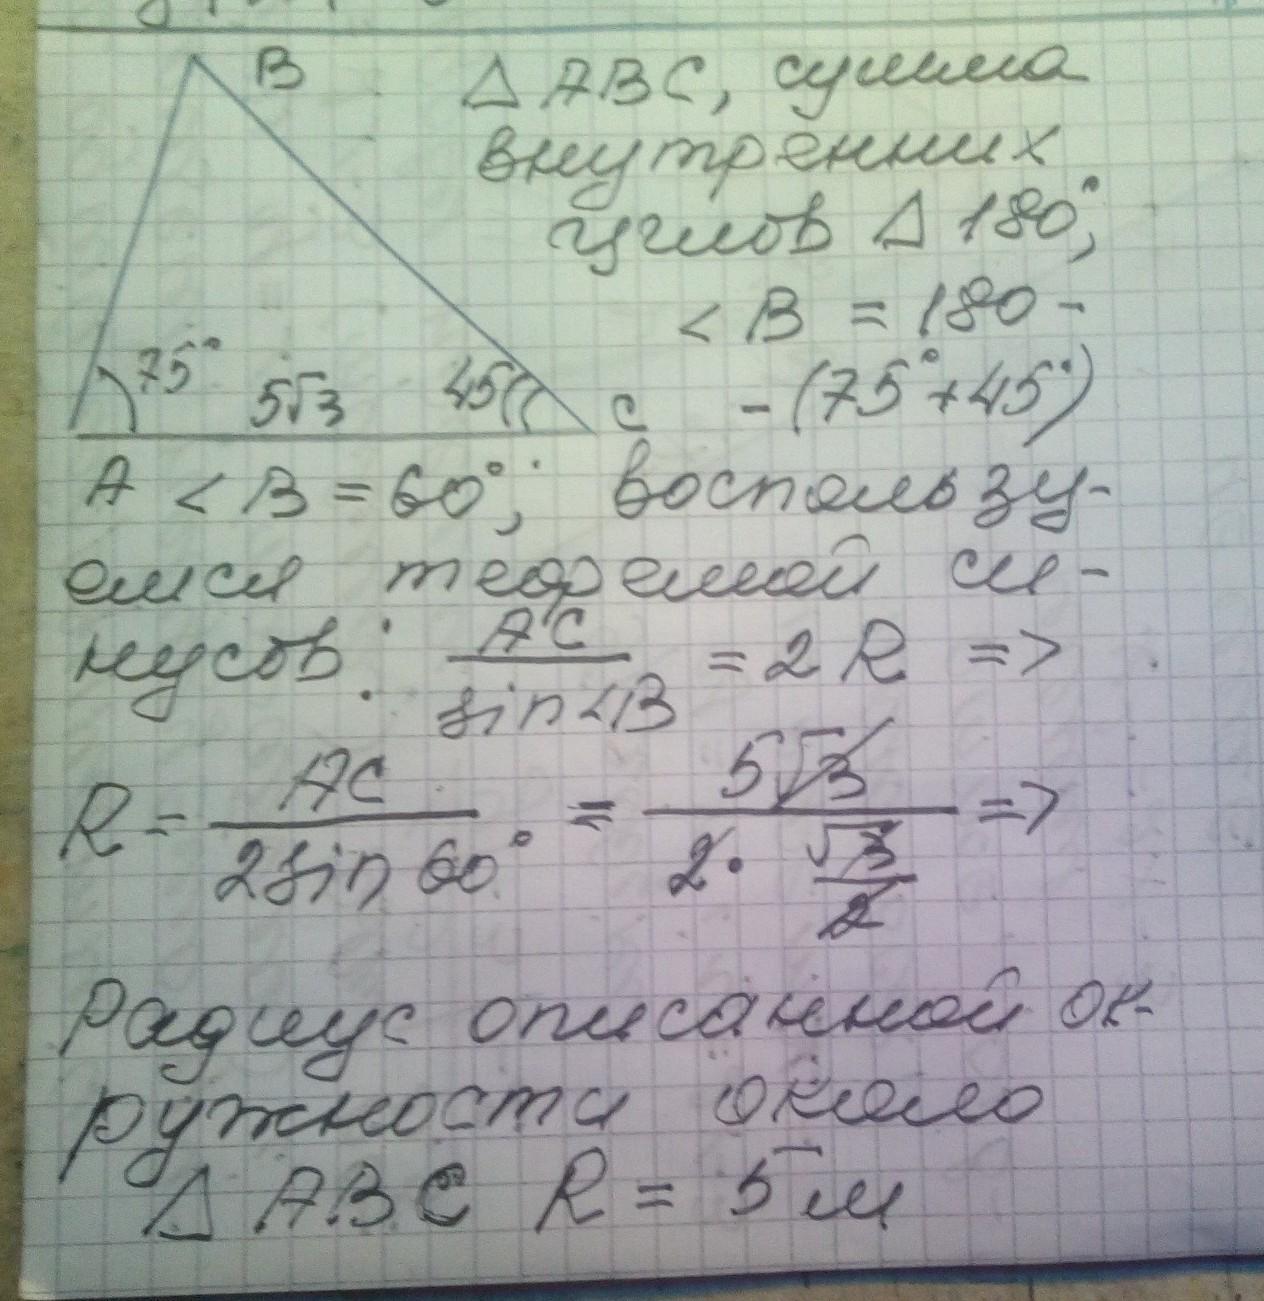 B
Δ ABC, сумма
внутренних
углов Δ 180°;
< B = 180 -
75° 5√3 45 C - (75° + 45°)
A < B = 60°; воспользу-
емся теоремой си-
нусов: AC / sin<B = 2R =>
R = AC / 2sin 60° = 5√3 / 2 · √3/2 =>
Радиус описанной ок-
ружности около
Δ ABC R = 5 м